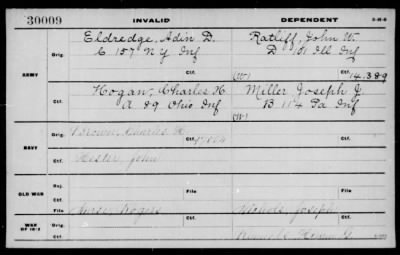 30009 INVALID DEPENDENT
Eldredge, Adin D. Ratliff, John W.
Orig. C 157 N Y Inf D 101 Ill Inf
ARMY (W) Ctf. 14,389
Hogan, Charles H Miller Joseph J
Ctf. A 89 Ohio Inf B 114 Pa Inf
(W)
Orig. Brown, Charles Ctf.
NAVY
Ctf. Hester John
Rej.
OLD WAR File File
Ctf.
Orig. Rogers Ctf. Nichols, Joseph
WAR OF 1812
Ctf.